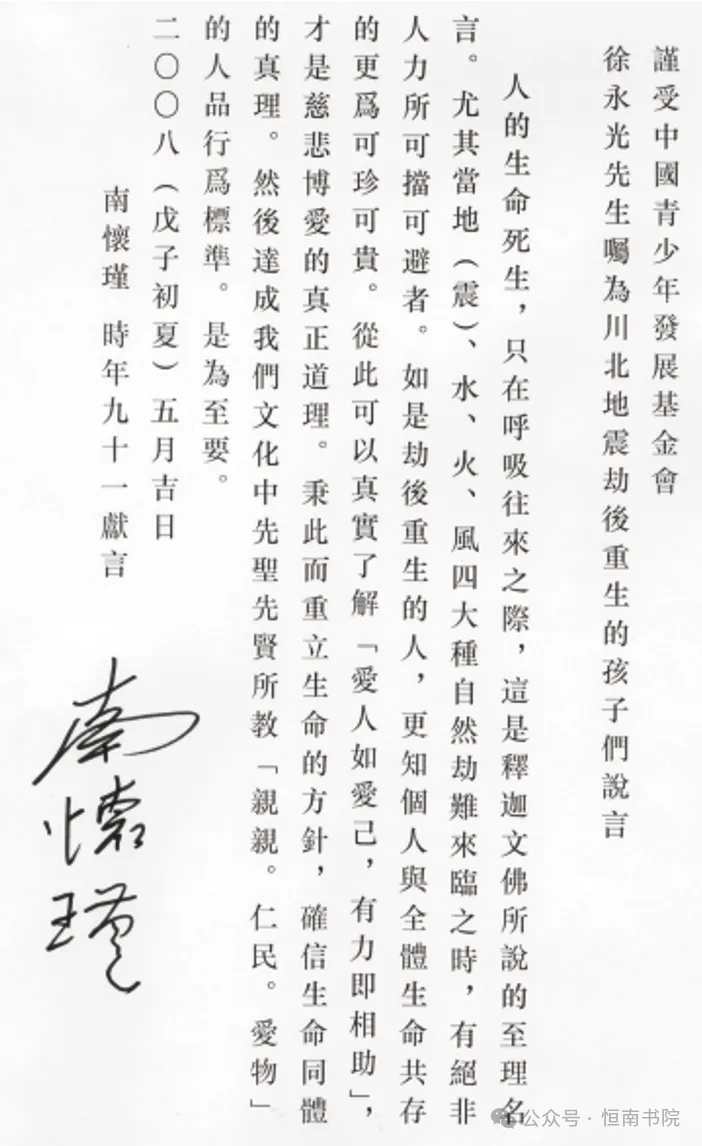 謹受中國青少年發展基金會
徐永光先生囑為川北地震劫後重生的孩子們說言
人的生命死生，只在呼吸往來之際，這是釋迦文佛所說的至理名
言。尤其當地（震）、水、火、風四大種自然劫難來臨之時，有絕非
人力所可擋可避者。如是劫後重生的人，更知個人與全體生命共存
的更爲可珍可貴。從此可以真實了解「愛人如愛己，有力即相助」，
才是慈悲博愛的真正道理。秉此而重立生命的方針，確信生命同體
的真理。然後達成我們文化中先聖先賢所教「親親。仁民。愛物」
的人品行爲標準。是為至要。
二〇〇八（戊子初夏）五月吉日
南懷瑾 時年九十一獻言
南懷瑾
公众号·恒南书院